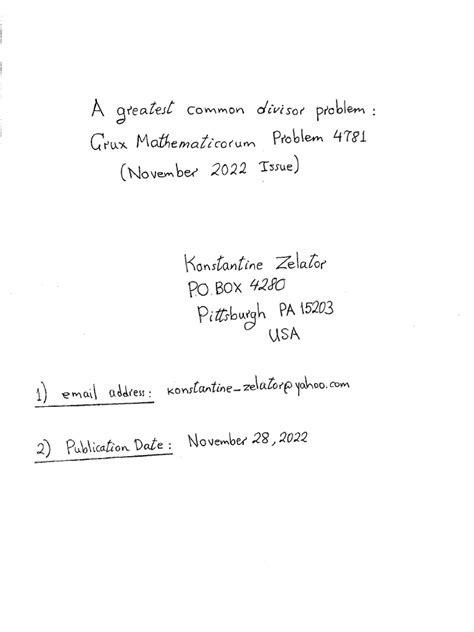 A greatest common divisor problem:
Crux Mathematicorum Problem 4781
(November 2022 Issue)
Konstantine Zelator
P.O. BOX 4280
Pittsburgh PA 15203
USA
1) email address: konstantine_zelator@yahoo.com
2) Publication Date: November 28, 2022